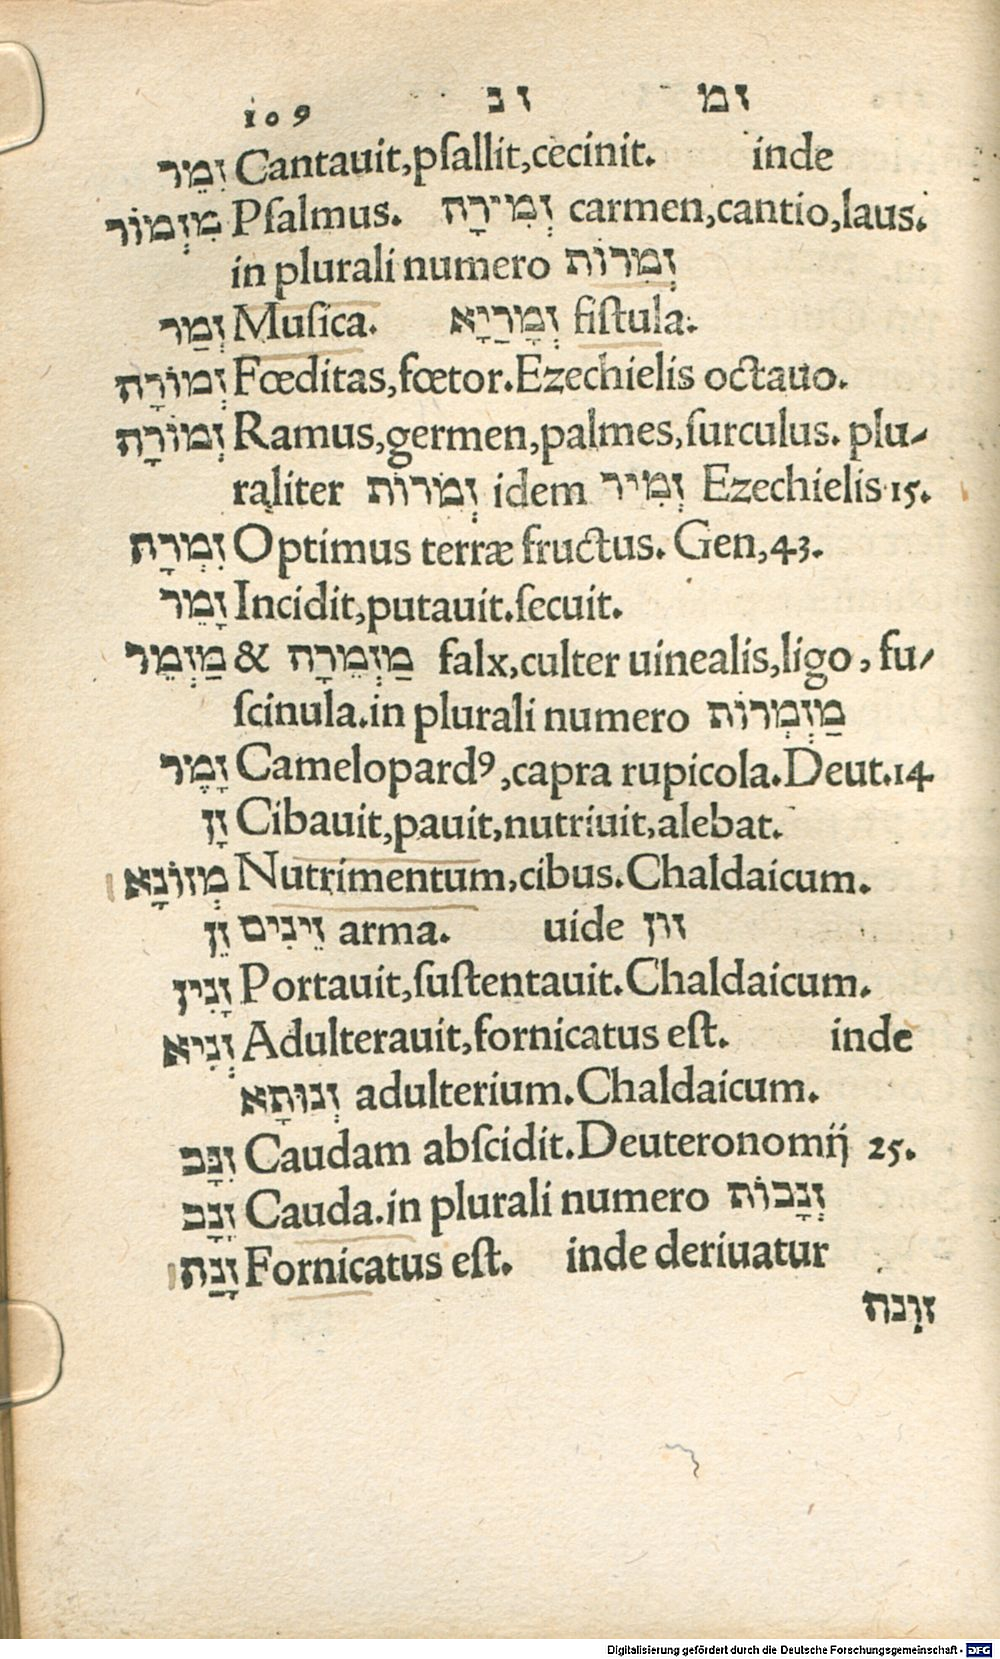 109 זנ זמ
זִמֵּר Cantauit,pſallit,cecinit. inde
מִזְמוֹר Pſalmus. זְמִירָה carmen,cantio,laus.
in plurali numero זְמִרוֹת
זְמַר Muſica. זְמָרַיָא fiſtula.
זְמוֹרָה Fœditas,fœtor.Ezechielis octauo.
זְמוֹרָה Ramus,germen,palmes,ſurculus. plu-
raliter זְמֹרוֹת idem זְמִיר Ezechielis 15.
זִמְרָה Optimus terræ fructus. Gen,43.
זָמֵר Incidit,putauit.ſecuit.
מַזְמֵר & מַזְמֵרָה falx,culter uinealis,ligo, fu-
ſcinula.in plurali numero מַזְמְרוֹת
זָמֶר Camelopardꝰ,capra rupicola.Deut.14
זָן Cibauit,pauit,nutriuit,alebat.
מְזוֹנָא Nutrimentum,cibus.Chaldaicum.
זֵן זֵינִים arma. uide זון
זָנִין Portauit,ſuſtentauit.Chaldaicum.
זְנִיא Adulterauit,fornicatus eſt. inde
זְנוּתָא adulterium.Chaldaicum.
זִנָּב Caudam abſcidit.Deuteronomij 25.
זָנָב Cauda.in plurali numero זְנָבוֹת
זָנַה Fornicatus eſt. inde deriuatur
זונה
Digitalisierung gefördert durch die Deutsche Forschungsgemeinschaft - DFG